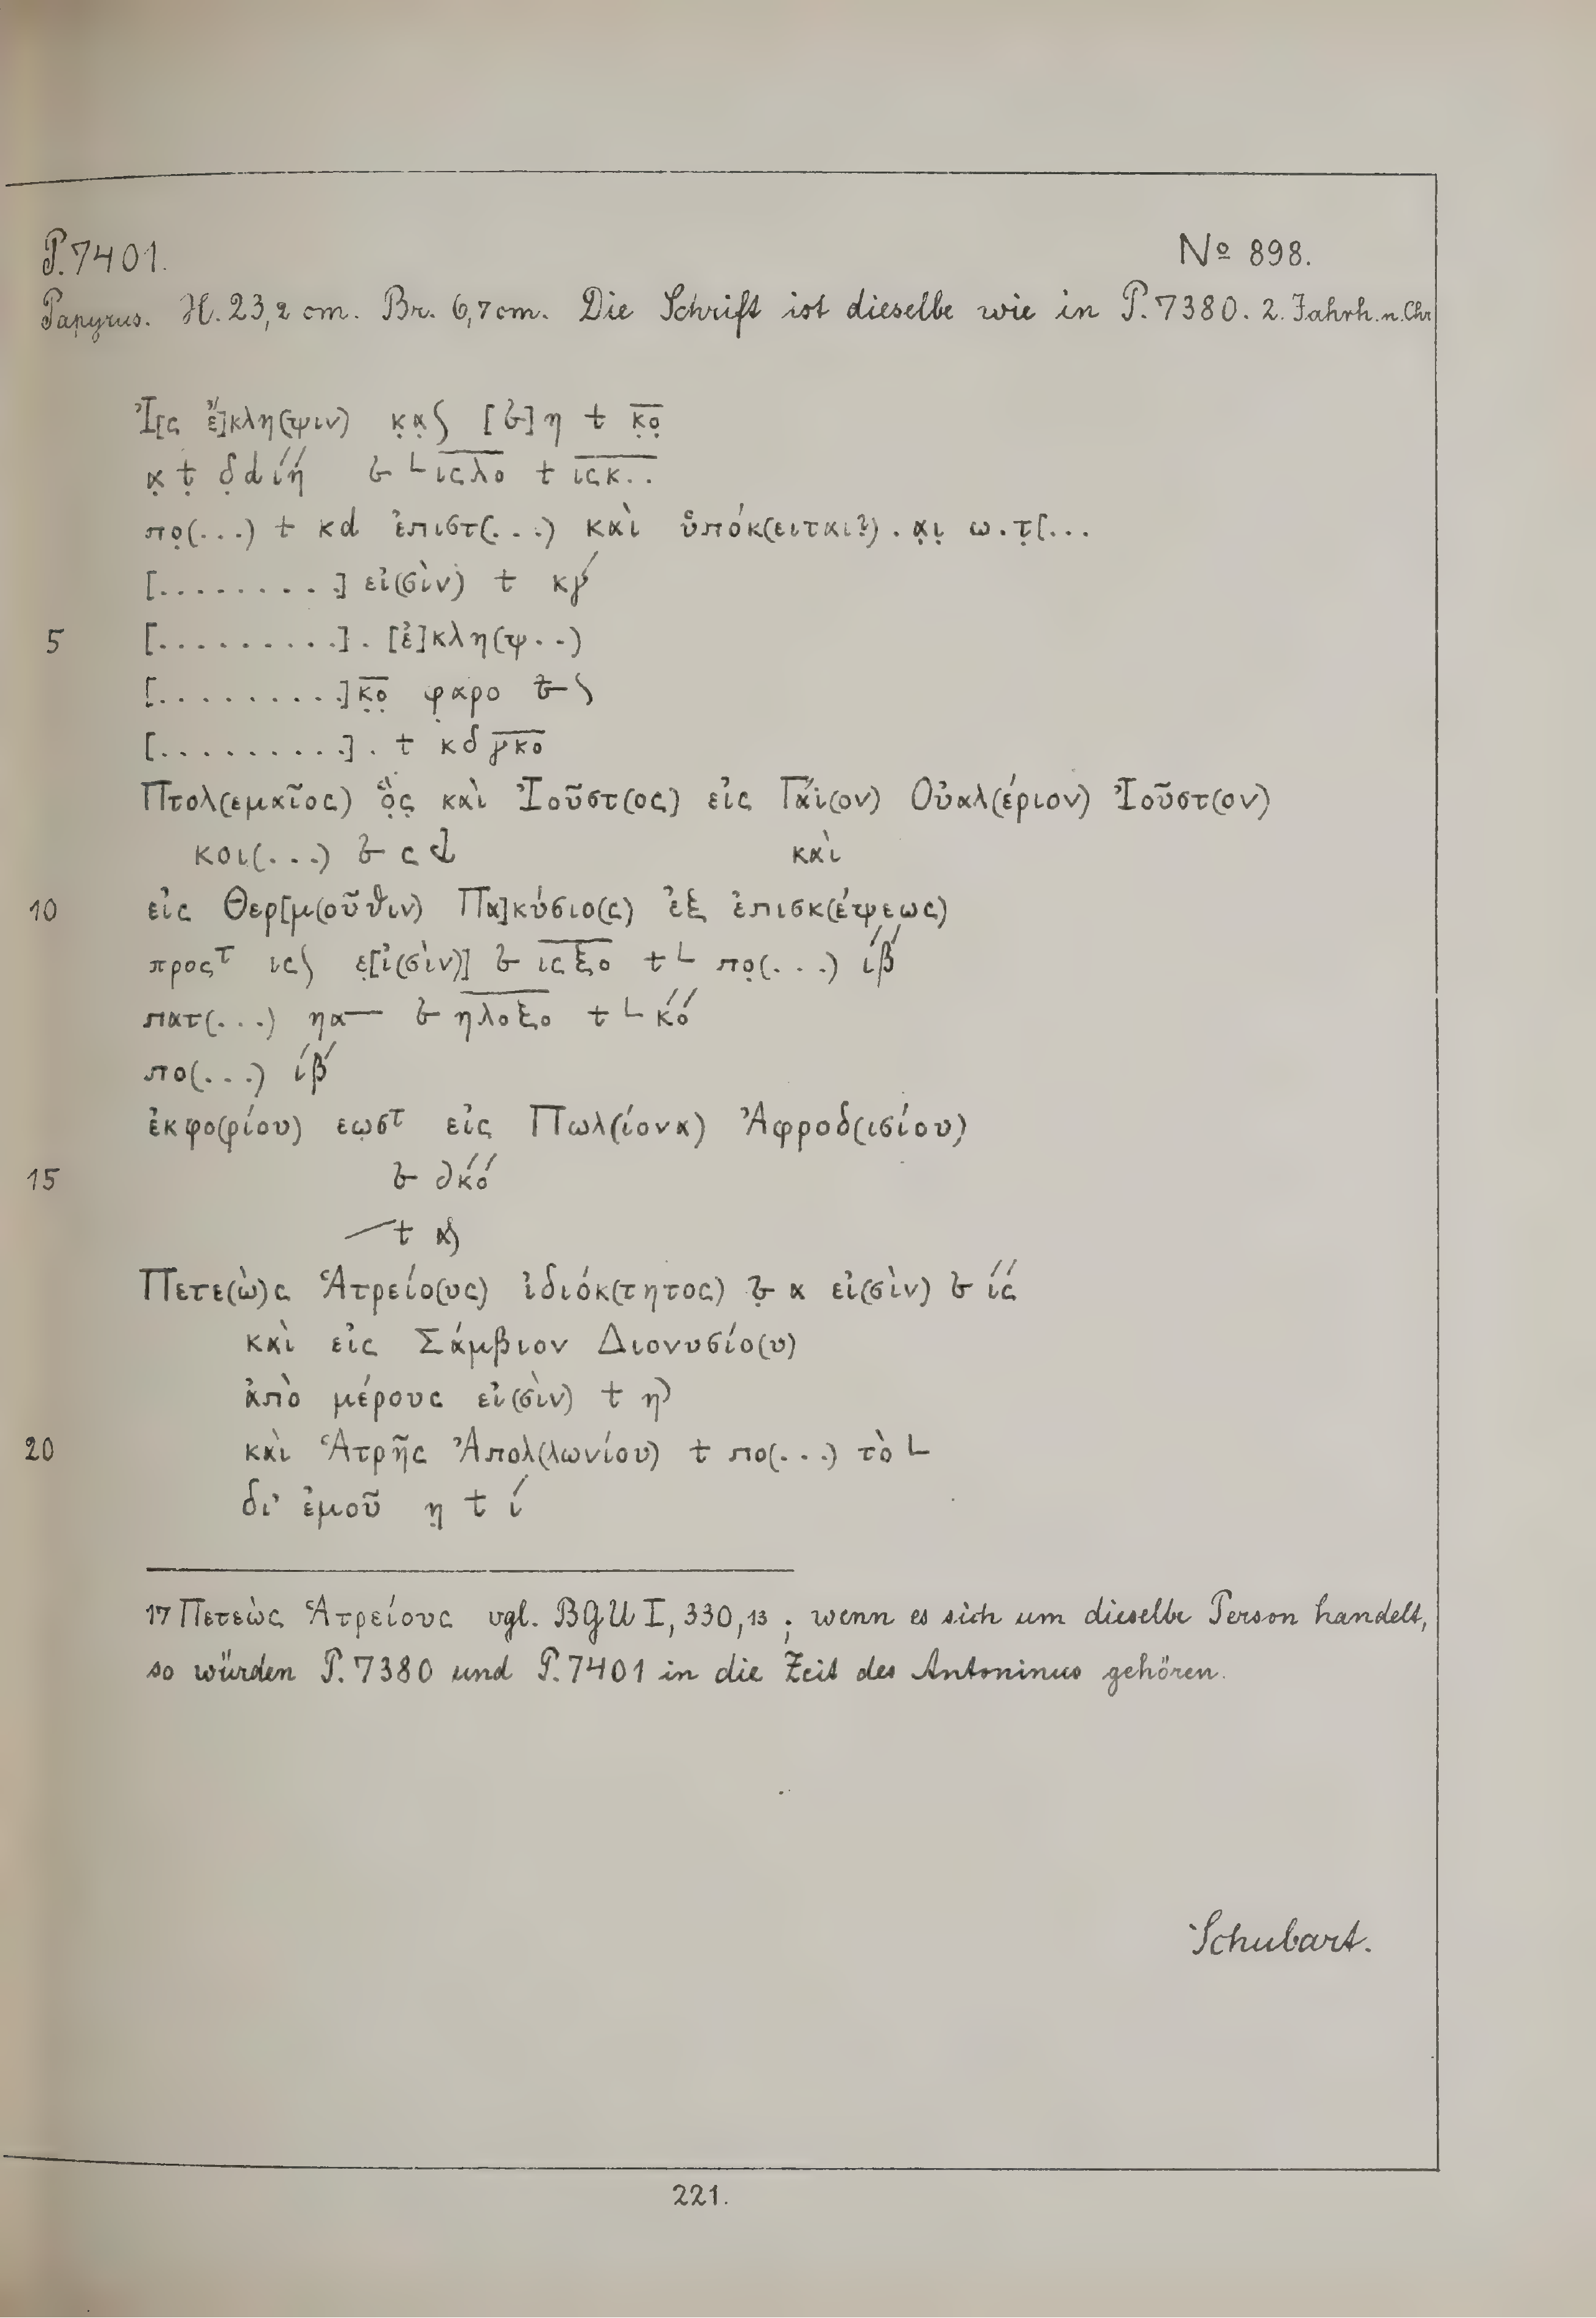 P. 7401.
No 898.
Papyrus. H. 23,2 cm. Br. 6,7 cm. Die Schrift ist dieselbe wie in P. 7380. 2. Jahrh. n. Chr
Ἰ[ς ἔ]κλη(ψιν) κ̣α̣ʃ [ƀ]η t κ̣ο̣
α̣ ṭ δ̣d ίή ƀ └ ιςλο t ιςκ..
πο̣(...) t κd ἐπιστ(...) καὶ ὑπόκ(ειται?) . α̣ι̣ ω.τ̣[...
[.........] εἰ(σὶν) t κγ́
5 [..........]. [ἐ]κλη(ψ..)
[.........]κ̣ο̣ φαρο ƀ ʃ
[..........]. t κδ γκο
Πτολ(εμαῖος) ὃ̣ς̣ καὶ Ἰοῦστ(ος) εἰς Γάι(ον) Οὐαλ(έριον) Ἰοῦστ(ον)
κοι(...) ƀ ς καὶ
10 εἰς Θερ[μ(οῦθιν) Πα]κύσιο(ς) ἐξ ἐπισκ(έψεως)
προςτ ιςʃ ε̣[ἰ(σὶν)] ƀ ιςξο t └ πο̣(...) ίβ́
πατ(...) ηα— ƀ ηλοξο t └ κ́ό
πο(...) ίβ́
ἐκφο(ρίου) εωστ εἰς Πωλ(ίονα) Ἀφροδ(ισίου)
15 ƀ ∂κ́ό
t αʃ
Πετε(ὼ)ς Ἁτρείο(υς) ἰδιόκ(τητος) ƀ̣ α εἰ(σὶν) ƀ ίς́
καὶ εἰς Σάμβιον Διονυσίο(υ)
ἀπὸ μέρους εἰ(σὶν) t η
20 καὶ Ἁτρῆς Ἀπολ(λωνίου) t πο(...) τὸ └
δι' ἐμοῦ η̣ t ί
17 Πετεὼς Ἁτρείους vgl. BGU I, 330,13 ; wenn es sich um dieselbe Person handelt,
so würden P. 7380 und P. 7401 in die Zeit des Antoninus gehören.
Schubart.
221.